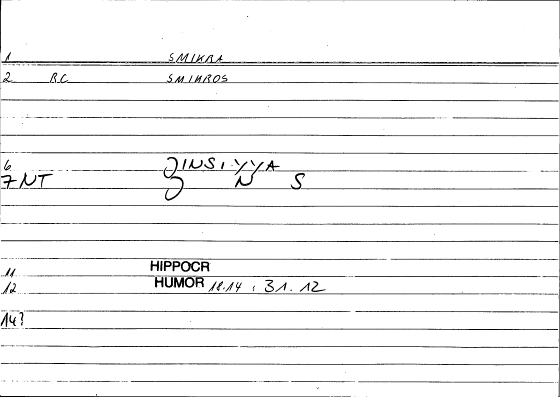 1 SMIKRA
2 RC SMIKROS
6 ZINSIYYA
7 NT Z N S
11 HIPPOCR
12 HUMOR 18.14 ; 31.12
14?